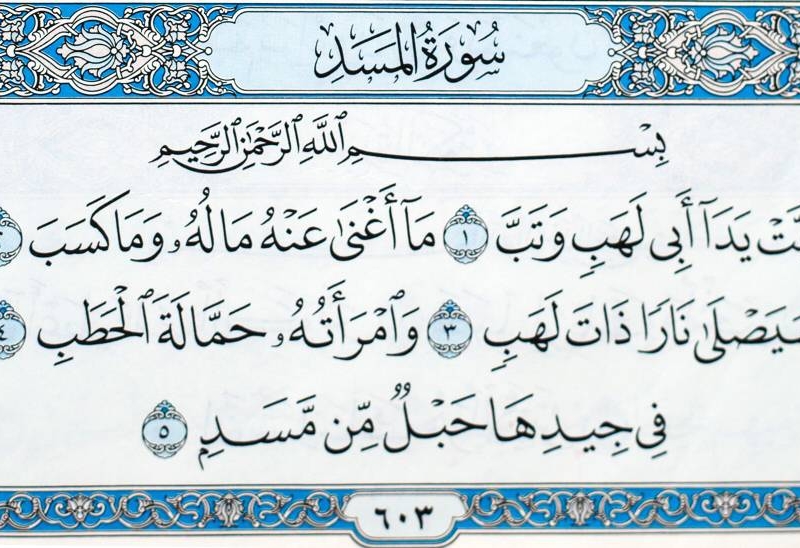 سُورَةُ المَسَدِ
بِسْمِ ٱللَّهِ ٱلرَّحْمَٰنِ ٱلرَّحِيمِ
يَدَآ أَبِى لَهَبٍ وَتَبَّ ١ مَآ أَغْنَىٰ عَنْهُ مَالُهُۥ وَمَا كَسَبَ
نَارًا ذَاتَ لَهَبٍ ٣ وَٱمْرَأَتُهُۥ حَمَّالَةَ ٱلْحَطَبِ ٤
فِى جِيدِهَا حَبْلٌ مِّن مَّسَدٍ ٥
٦٠٣